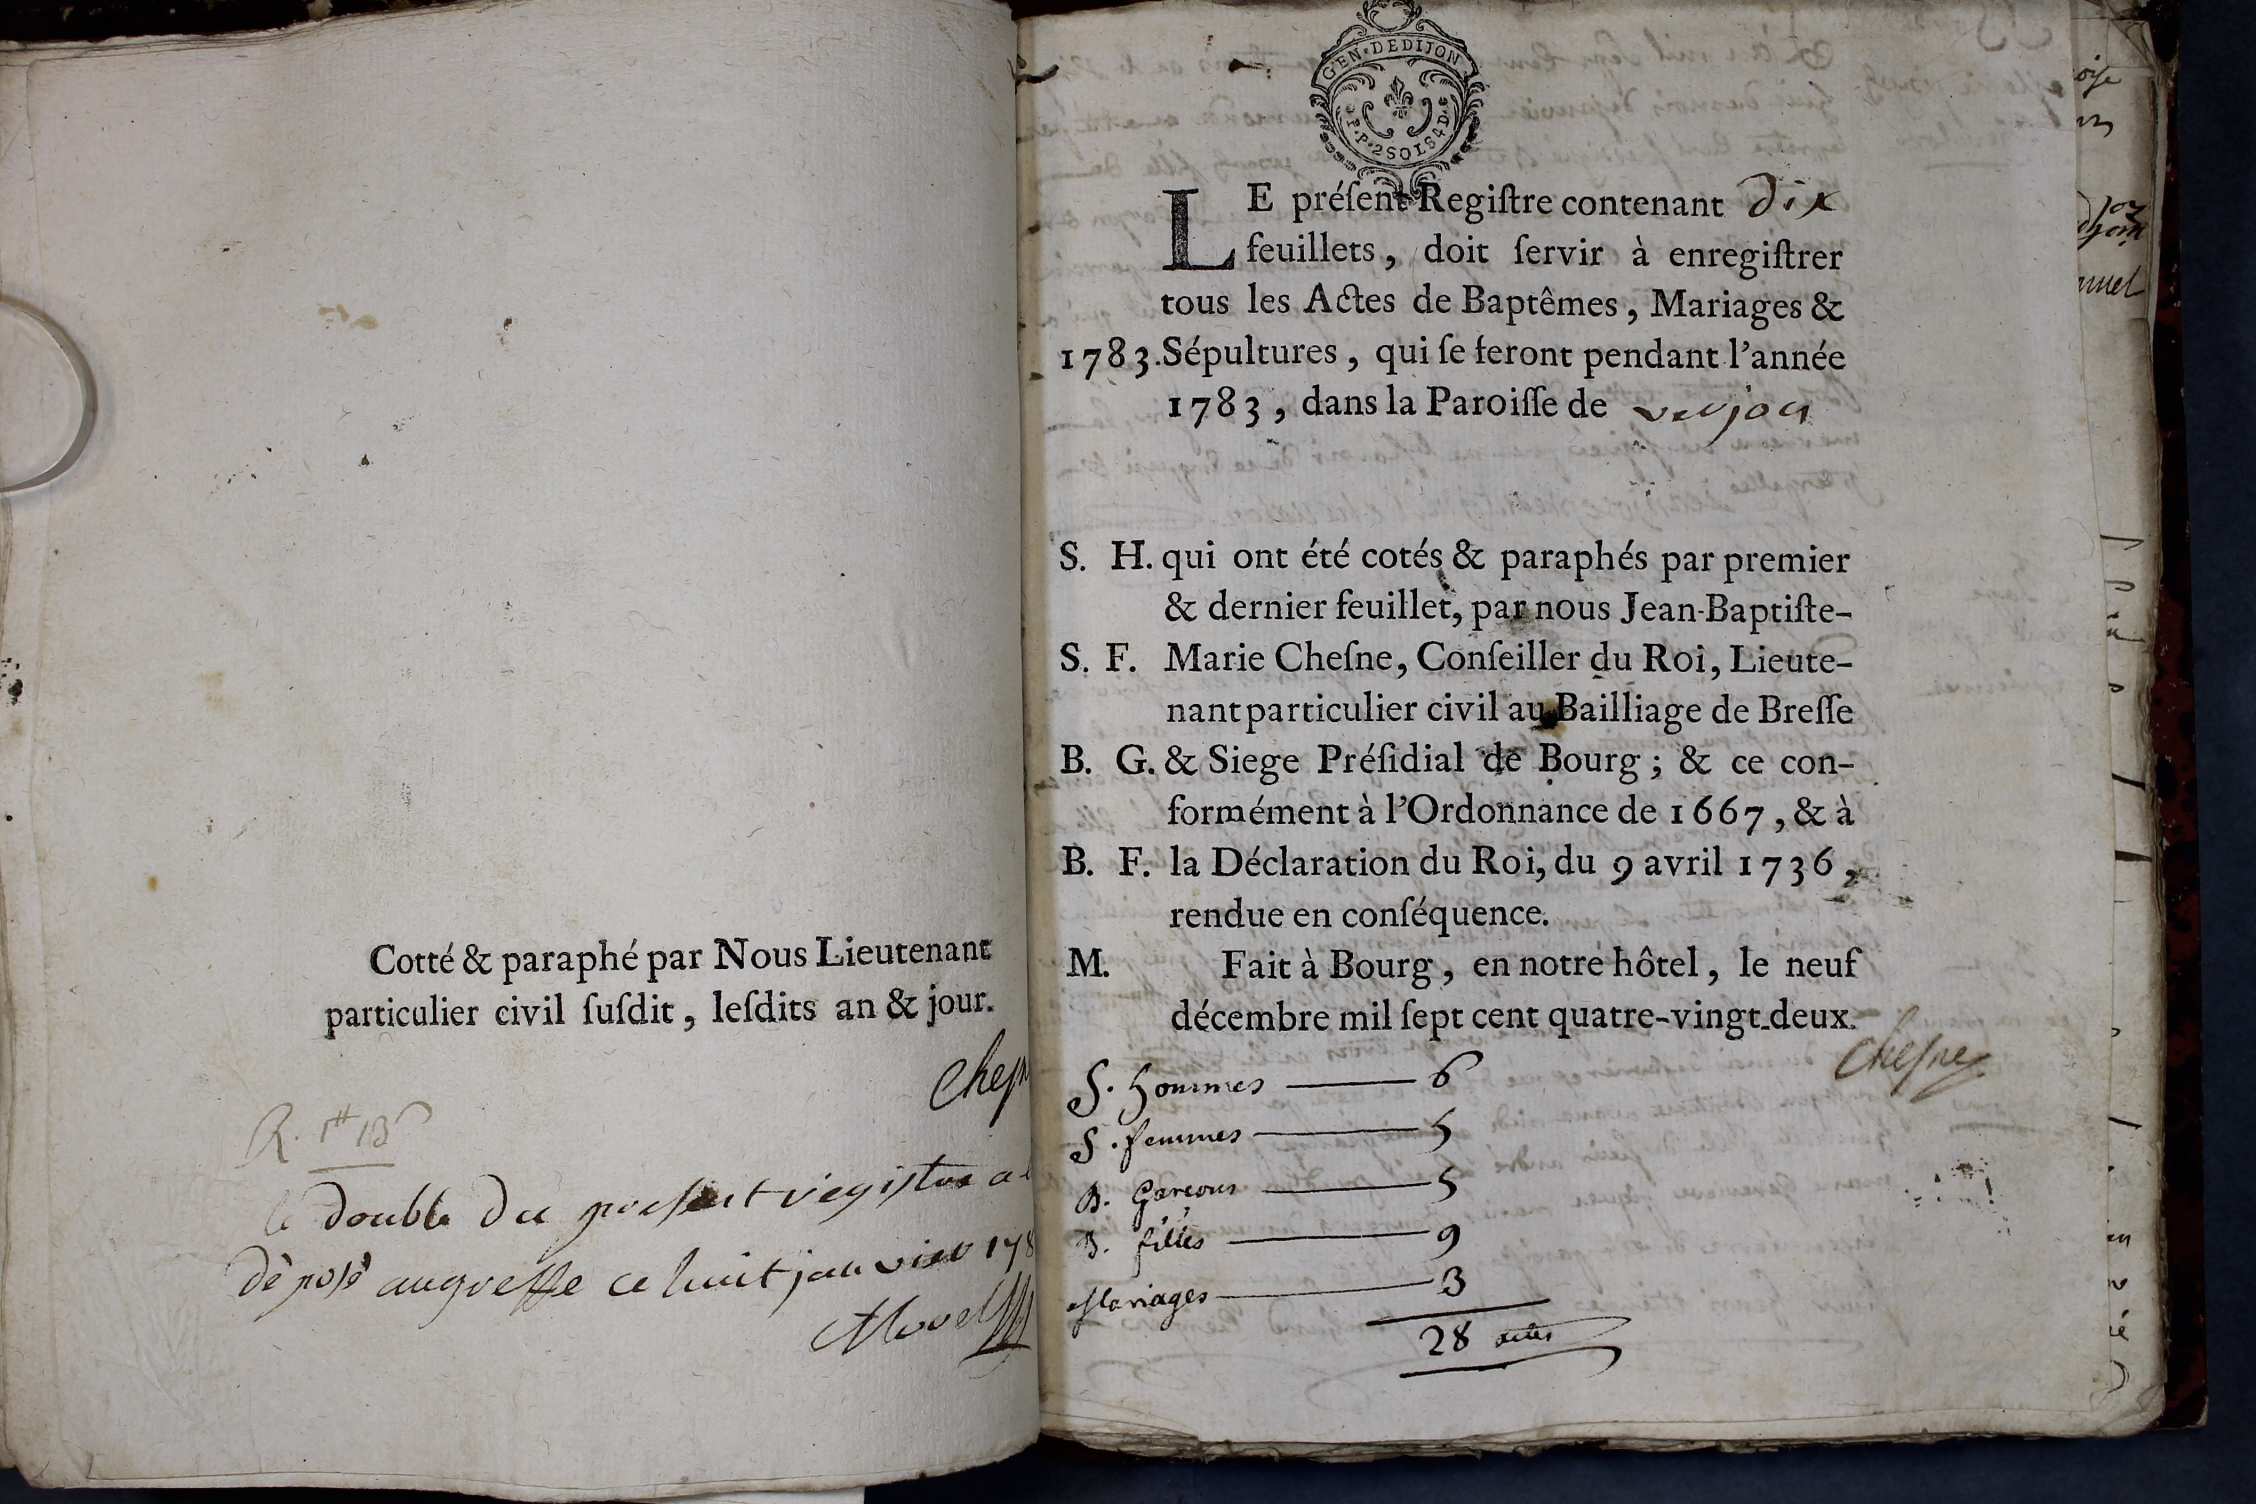 Cotté & paraphé par Nous Lieutenant
particulier civil ſuſdit, leſdits an & jour.
Cheſn
R. 1# 13
le double du present registre a
dèposé augreffe ce huit janvier 178
GEN·DEDIJON
P.P.2SOLS4D.
LE préſent Regiſtre contenant dix
feuillets, doit ſervir à enregiſtrer
tous les Actes de Baptêmes, Mariages &
1783. Sépultures, qui ſe feront pendant l'année
1783, dans la Paroiſſe de verjon
S. H. qui ont été cotés & paraphés par premier
& dernier feuillet, par nous Jean-Baptiſte-
S. F. Marie Cheſne, Conſeiller du Roi, Lieute-
nant particulier civil au Bailliage de Breſſe
B. G. & Siege Préſidial de Bourg; & ce con-
formément à l'Ordonnance de 1667, & à
B. F. la Déclaration du Roi, du 9 avril 1736,
rendue en conſéquence.
M. Fait à Bourg, en notre hôtel, le neuf
décembre mil ſept cent quatre-vingt-deux.
Cheſne
S. hommes — 6
S. femmes — 5
B. Garçons — 5
B. filles — 9
Mariages — 3
28 actes